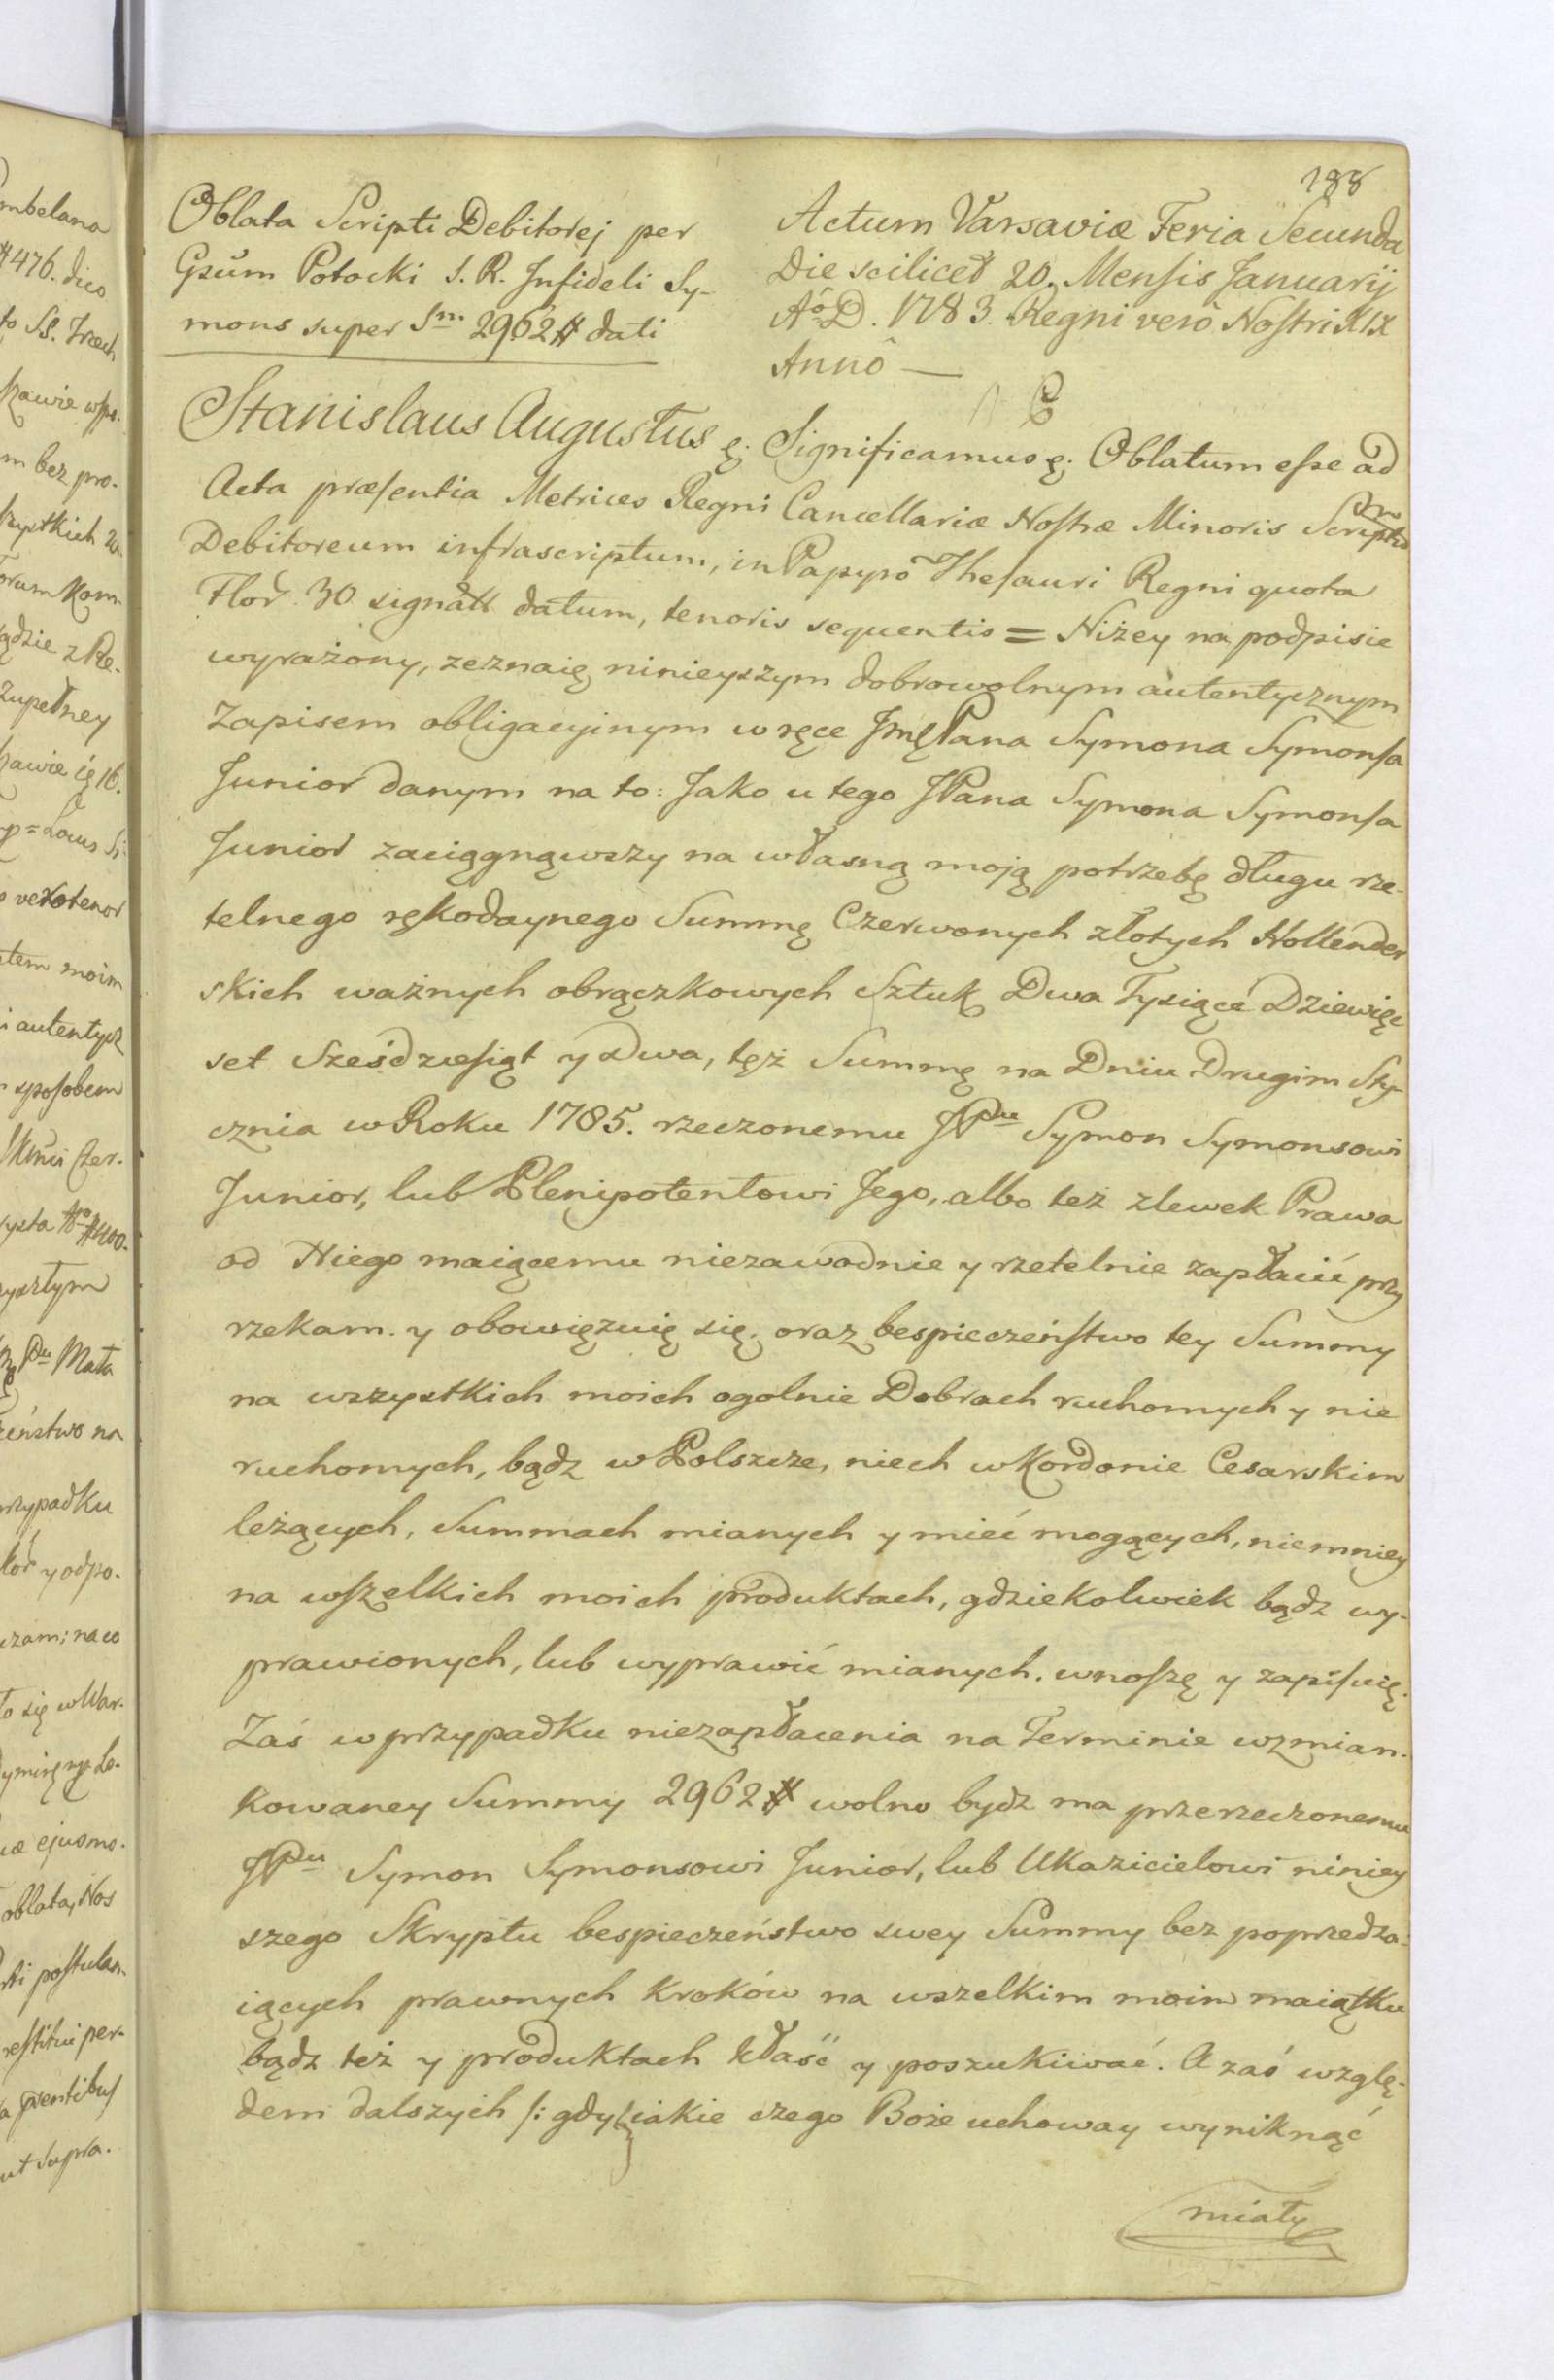 188
Oblata Scripti Debitorej per
Gsũm Potocki S. R. Infideli Sy-
mons super Sm 2962# dati
Actum Varsaviæ Feria Secunda
Die scilicet 20. Mensis Januarij
Aô D. 1783. Regni verò Nostri XIX
Annô —
Stanislaus Augustus &. Significamus &. Oblatum esse ad
Acta præsentia Metrices Regni Cancellariæ Nostræ Minoris Scriptum
Debitoreum infrascriptum, in Papyrô Thesauri Regni quota
Flor. 30 signãtt datum, tenoris sequentis = Niżey na podpisie
wyrażony, zeznaię ninieyszym dobrowolnym autentycznym
Zapisem obligacyinym w ręce Jmę Pana Symona Symonsa
Junior danym na to: Jako u tego JPana Symona Symonsa
Junior zaciągnąwszy na własną moją potrzebę długu rze-
telnego rękodaynego Summę Czerwonych złotych Hollender
skich ważnych obrączkowych Sztuk Dwa Tysiące Dziewięć
set Sześdziesiąt y Dwa, tęż Summę na Dniu Drugim Sty-
cznia w Roku 1785. rzeczonemu JPu Symon Symonsowi
Junior, lub Plenipotentowi Jego, albo też zlewek Prawa
od Niego maiącemu niezawodnie y rzetelnie zapłacić przy
rzekam. y obowięzuię się, oraz bespieczeństwo tey Summy
na wszystkich moich ogolnie Dobrach ruchomych y nie
ruchomych, bądz w Polszcze, niech w Kordonie Cesarskim
leżących, Summach mianych y mieć mogących, niemniey
na wszelkich moich produktach, gdziekolwiek bądz wy-
prawionych, lub wyprawić mianych. wnoszę y zapisuię.
Zaś w przypadku niezapłacenia na Terminie wzmian-
kowaney Summy 2962# wolno bydz ma przerzeczonemu
JPu Symon Symonsowi Junior, lub Ukazicielowi niniey
szego Skryptu bespieczeństwo swey Summy bez poprzedza-
iących prawnych kroków na wszelkim moim maiątku
bądz też y produktach kłaść y poszukiwać. A zaś wzglę-
dem dalszych /: gdyby iakie czego Boże uchoway wyniknąć
miały